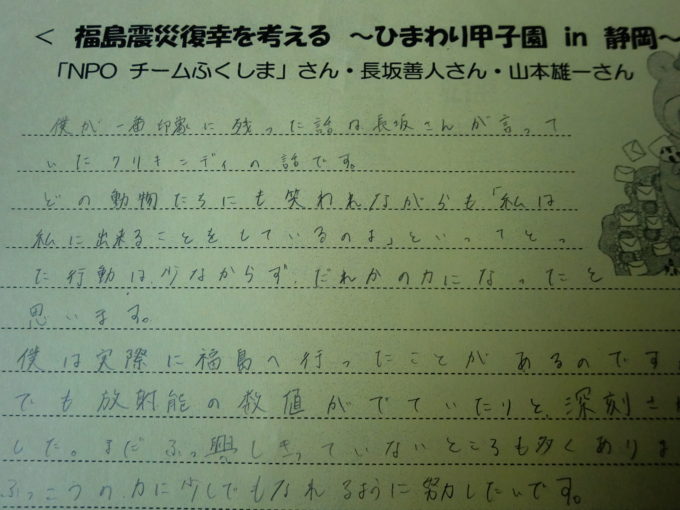 < 福島震災復幸を考える ～ひまわり甲子園 in 静岡～
「NPO チームふくしま」さん・長坂善人さん・山本雄一さん
僕が一番印象に残った話は長坂さんが言って
いたクリキンディの話です。
どの動物たちにも笑われながらも「私は
私に出来ることをしているのよ」といってとっ
た行動は、少なからず、だれかの力になったと
思います。
僕は実際に福島へ行ったことがあるのです
でも放射能の数値がでていたりと、深刻さ
した。まだふっ興しきっていないところも多くありま
ふっこうの力に少しでもなれるように努力したいです。